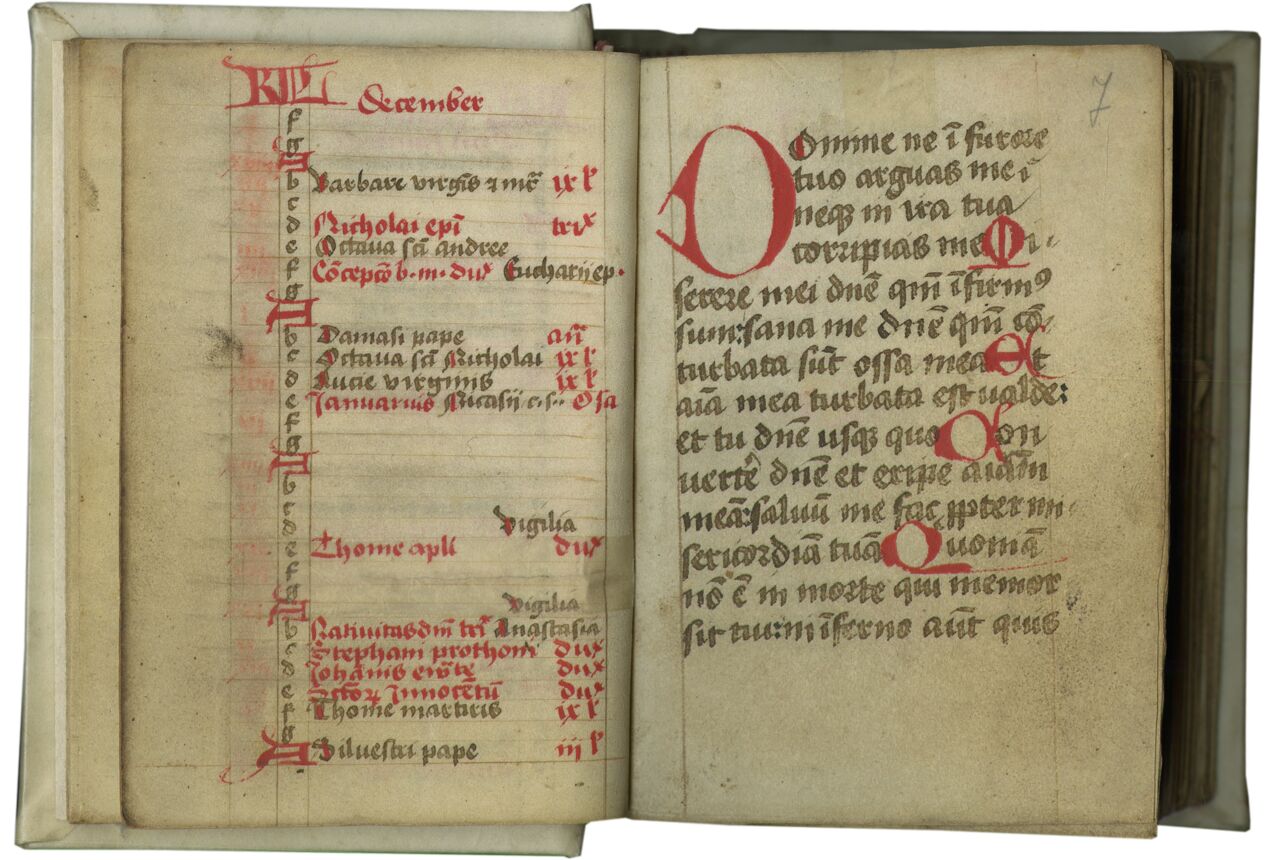 KL December
f
g
A
b Barbare virgīs ⁊ mr̄ ix l
c
d Nicholai epī trix
e Octaua scī andree
f Cōcepcō b·m· dux Eucharii ep·
g
A
b Damasi pape
c Octaua scī Nicholai ix l
d Lucie virginis ix l
e Nicasij
f
g
A
b
c
d vigilia
e Thome apli dux
f
g
A vigilia
b Natiuitas dm̄ Anastasia
c Stephani prothom̄ dux
d Johānis dux
e Innocētū dux
f Thome martiris ix l
g
A Siluestri pape iij l
7
Domine ne ī furore
tuo arguas me:
neqꝫ in ira tua
corripias me Mi
serere mei dn̄e qm̄ īfirmꝰ
sum: sana me dn̄e qm̄ cō
turbata sūt ossa mea Et
aīa mea turbata est ualde:
et tu dn̄e usqꝫ quo Con
uertē dn̄e et eripe aīam
meā: saluū me fac ꝓpter mi
sericordiā tuā Quoniā
nō ē in morte qui memor
sit tui: in īferno aūt quis